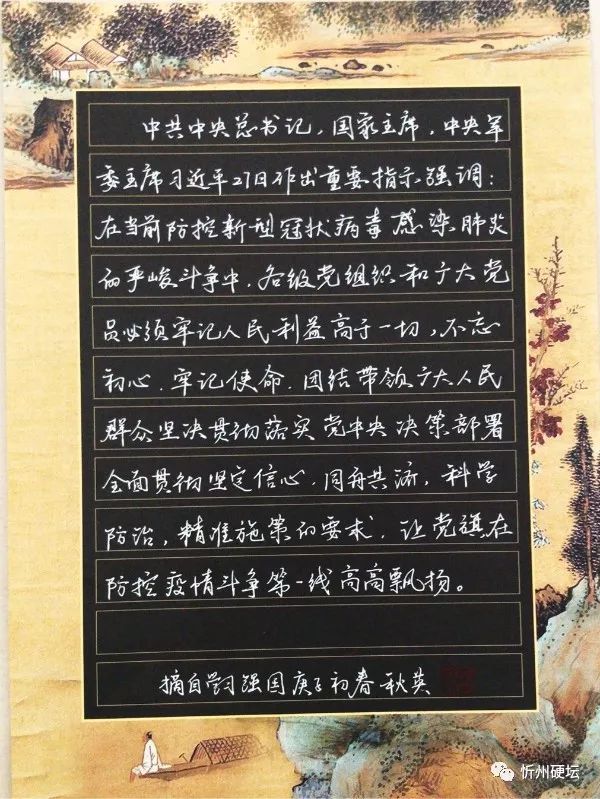 中共中央总书记，国家主席，中央军
委主席习近平27日作出重要指示强调：
在当前防控新型冠状病毒感染肺炎
的严峻斗争中，各级党组织和广大党
员必须牢记人民利益高于一切，不忘
初心，牢记使命，团结带领广大人民
群众坚决贯彻落实党中央决策部署
全面贯彻坚定信心，同舟共济，科学
防治，精准施策的要求，让党旗在
防控疫情斗争第一线高高飘扬。
摘自学习强国庚子初春秋英
忻州硬坛